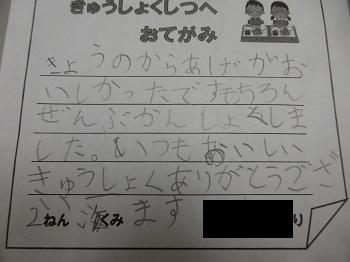 きゅうしょくしつへ
おてがみ
きょうのからあげがお
いしかったですもちろん
ぜんぶかんしょくしま
した。いつもおいしい
きゅうしょくありがとうござ
います
2ねん くみ り